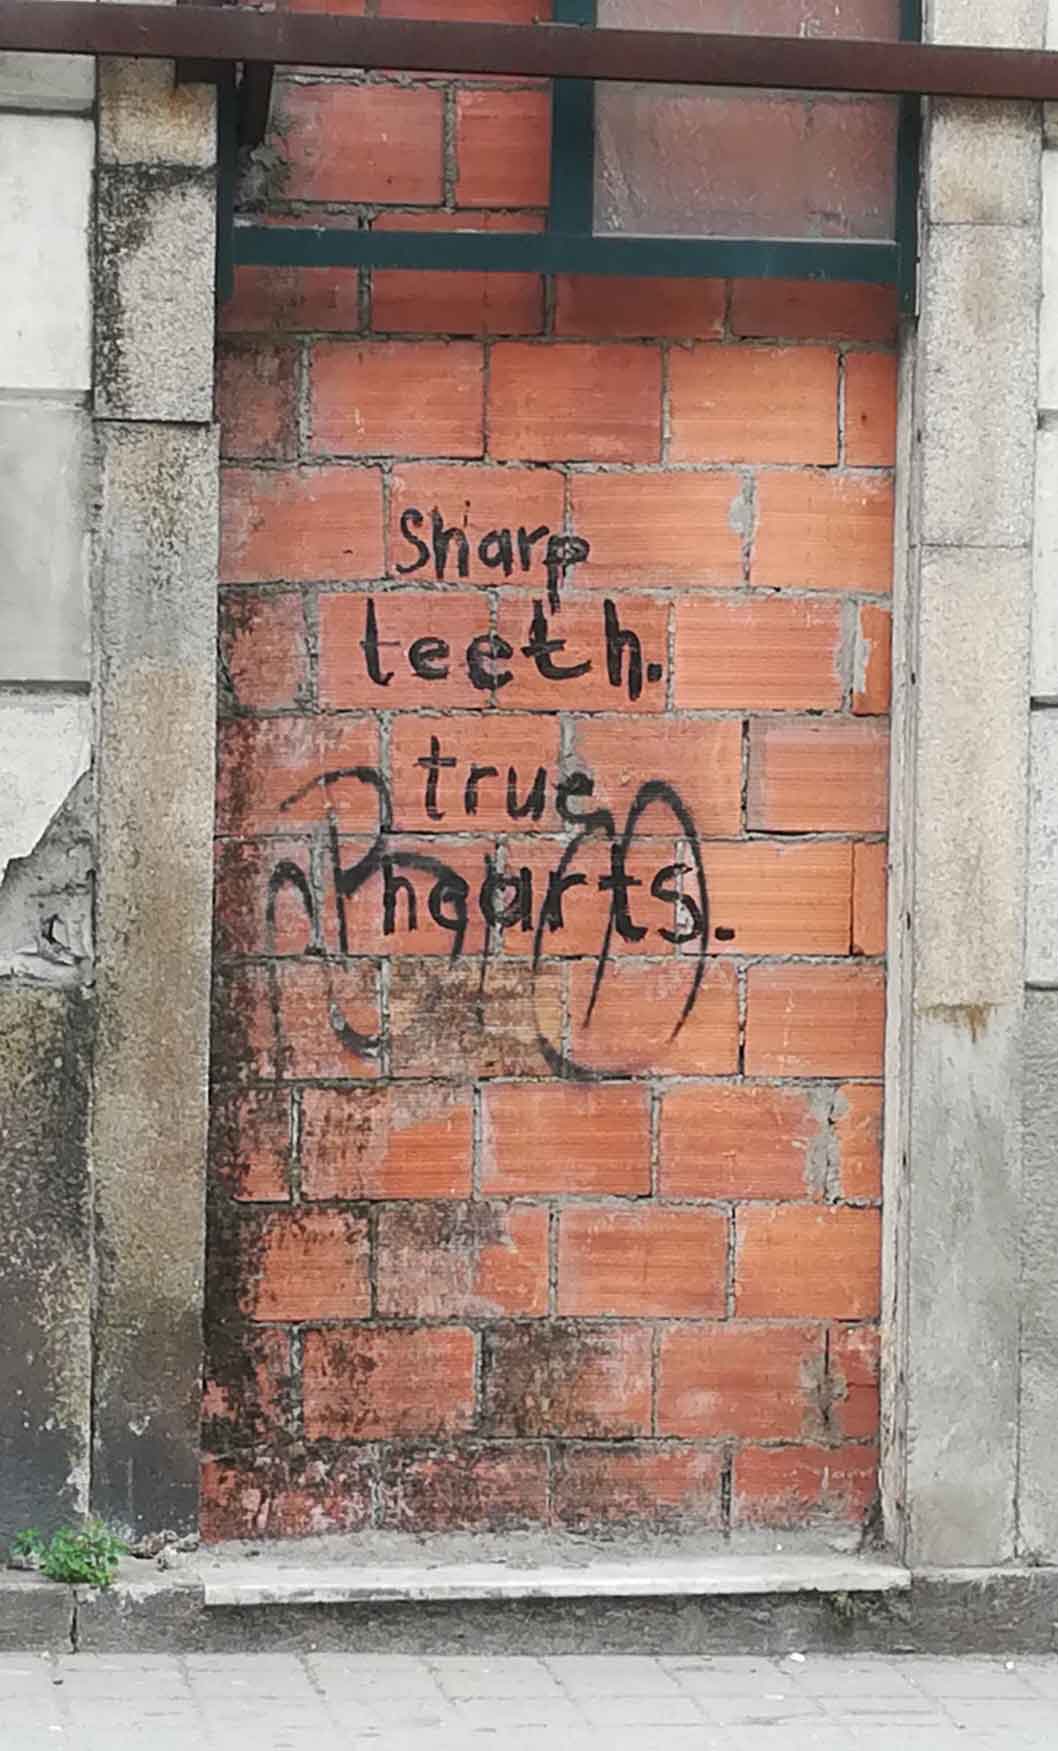 Sharp
teeth.
true
hearts.